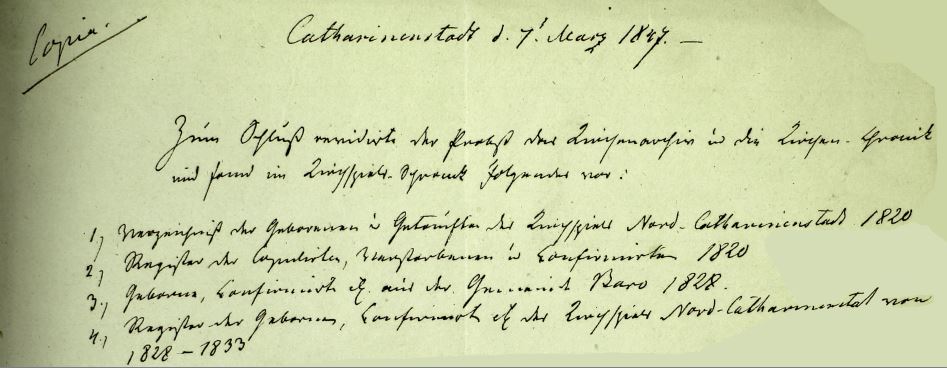 Copia.
Catharinenstadt d. 7t März 1847. —
Zum Schluß revidirte der Probst das Kirchenarchiv u die Kirchen-Chronik
und fand im Kirchspiels-Schrank folgendes vor:
1, Verzeichniß der Geborenen u Getauften des Kirchspiels Nord-Catharinenstadt 1820
2, Register der Copulirten, Verstorbenen u Confirmirten 1820
3, Geborne, Confirmirte etc. aus der Gemeinde Baro 1828.
4, Register der Gebornen, Confirmirte etc des Kirchspiels Nord-Catharinenstat von
1828 – 1833